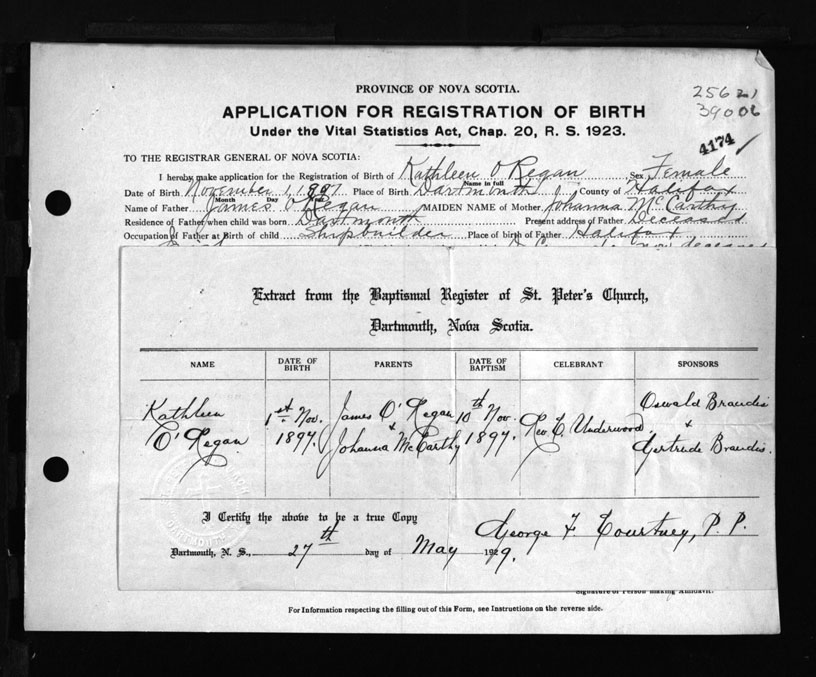 PROVINCE OF NOVA SCOTIA.
256 21
39006
APPLICATION FOR REGISTRATION OF BIRTH
Under the Vital Statistics Act, Chap. 20, R. S. 1923.
4174
TO THE REGISTRAR GENERAL OF NOVA SCOTIA:
I hereby make application for the Registration of Birth of Kathleen O'Regan Sex Female
Name in full
Date of Birth November 1, 1897 Place of Birth Dartmouth County of Halifax
Month Day
Name of Father James O'Regan MAIDEN NAME of Mother Johanna McCarthy
Residence of Father when child was born Dartmouth Present address of Father Deceased
Occupation of Father at Birth of child Shipbuilder Place of birth of Father Halifax
now deceased
Extract from the Baptismal Register of St. Peter's Church,
Dartmouth, Nova Scotia.
NAME DATE OF BIRTH PARENTS DATE OF BAPTISM CELEBRANT SPONSORS
Kathleen O'Regan 1st Nov. 1897. James O'Regan & Johanna McCarthy 10th Nov. 1897. Rev. C. Underwood Oswald Braudis & Gertrude Braudis.
I Certify the above to be a true Copy George F. Courtney, P. P.
Dartmouth, N. S., 27th day of May 1929.
Signature of Person making Affidavit.
For Information respecting the filling out of this Form, see Instructions on the reverse side.